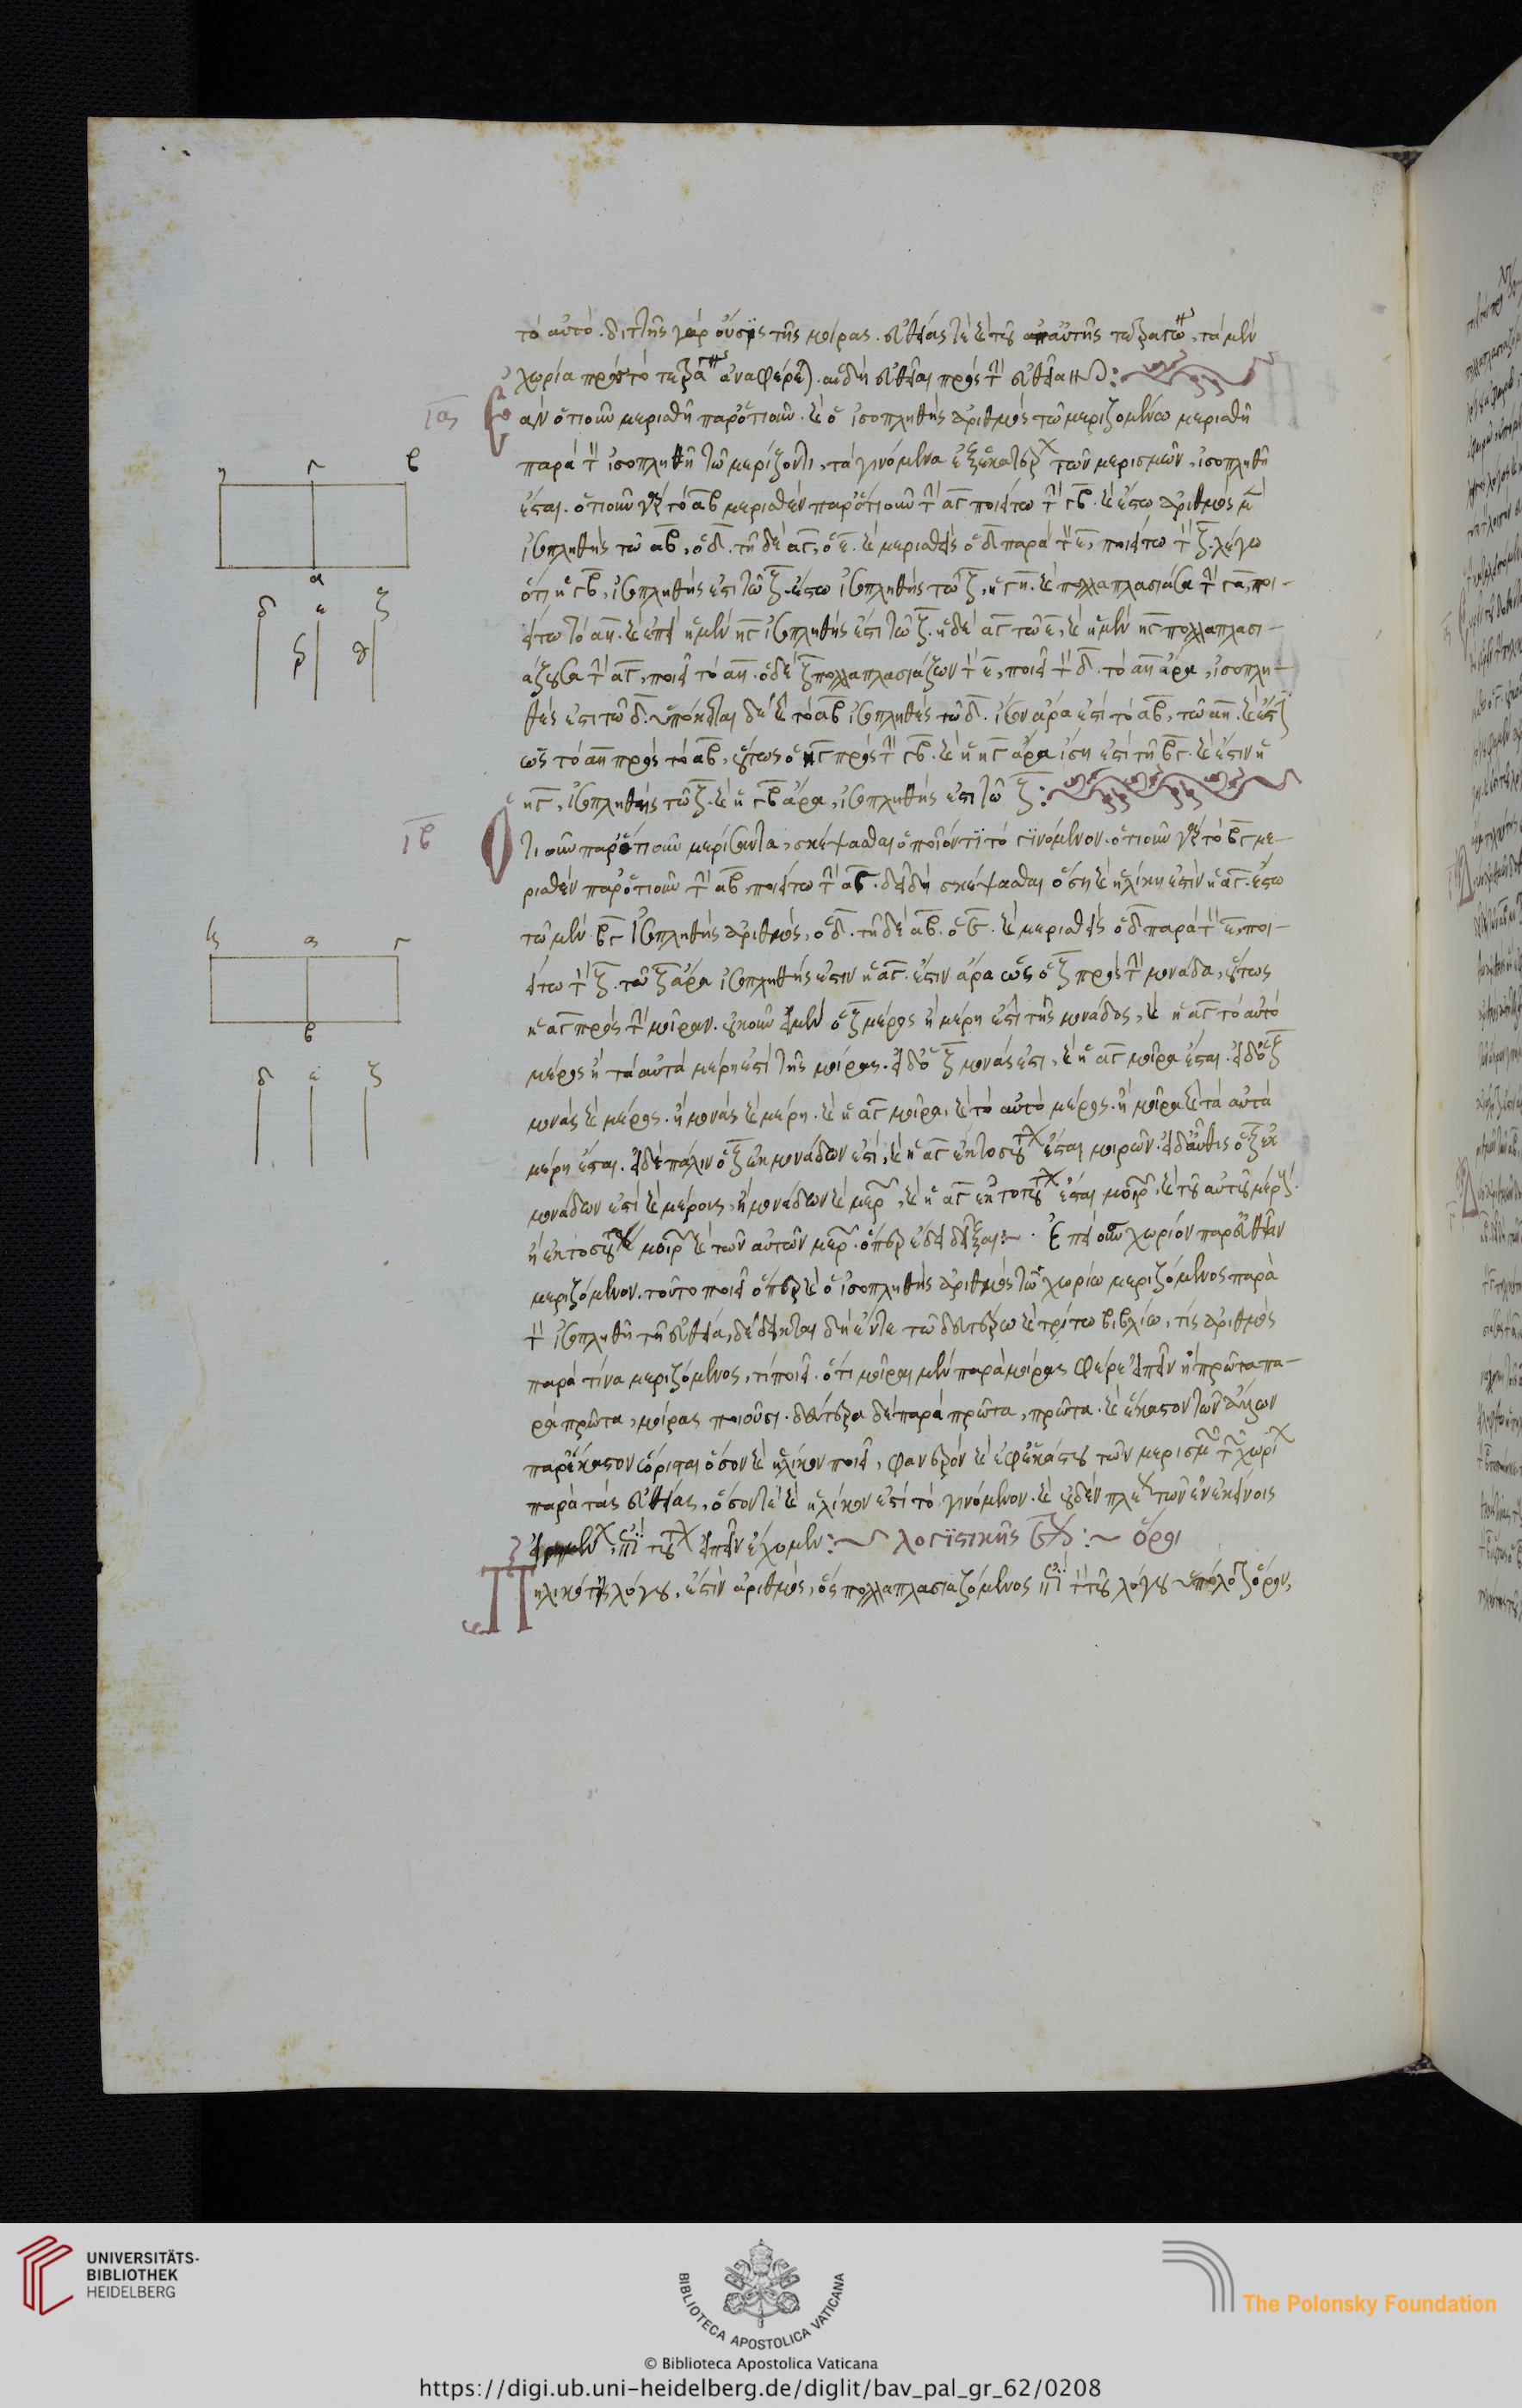 τὸ αὐτό. διττῆς γὰρ οὔσης τῆς μοίρας. εὐθείας τὲ καὶ τοῦ ἀπ' αὐτῆς τετραγώ, τὰ μὲν
χωρία πρὸς τὸ τετρά ἀναφέρε. αἱ δὴ εὐθεῖαι πρὸς τὴν εὐθεῖαν:
ια
ἐὰν ὁτιοῦν μερισθῇ παρ' ὁτιοῦν. καὶ ὁ ἰσοπληθὴς ἀριθμὸς τῷ μεριζομένω μερισθῇ
παρὰ τὸν ἰσοπληθῆ τῷ μερίζοντι, τὰ γινόμενα ἐξ ἑκατέρ τῶν μερισμῶν, ἰσοπληθῆ
ἔσται. ὁτιοῦν γὰρ τὸ αβ μερισθὲν παρ' ὁτιοῦν τὴν αγ ποιείτω τὴν γβ. καὶ ἔστω ἀριθμὸς
ἰσοπληθὴς τῷ αβ, ὁ δ. τῇ δὲ αγ, ὁ ε. καὶ μερισθεὶς ὁ δ παρὰ τὸν ε, ποιείτω τὸν ζ. λέγω
ὅτι ἡ γβ, ἰσοπληθής ἐστι τῷ ζ. ἔστω ἰσοπληθὴς τῷ ζ, ἡ γη. καὶ πολλαπλασιάσα τὴν γα, ποι-
είτω τὸ αη. καὶ ἐπεὶ ἡ μὲν ηγ ἰσοπληθής ἐστι τῷ ζ. ἡ δὲ αγ τῷ ε, καὶ ἡ μὲν ηγ πολλαπλασι-
άζουσα τὴν αγ, ποιεῖ τὸ αη. ὁ δὲ ζ πολλαπλασιάζων τὸν ε, ποιεῖ τὸν δ. τὸ αη ἄρα, ἰσοπλη-
θές ἐστι τῷ δ. ὑπόκειται δὲ καὶ τὸ αβ ἰσοπληθὲς τῷ δ. ἴσον ἄρα ἐστὶ τὸ αβ, τῷ αη. καὶ ἔστιν
ὡς τὸ αη πρὸς τὸ αβ, οὕτως ἡ ηγ πρὸς τὴν γβ. καὶ ἡ ηγ ἄρα ἴση ἐστὶ τῇ βγ. καὶ ἔστιν ἡ
ηγ, ἰσοπληθὴς τῷ ζ. καὶ ἡ γβ ἄρα, ἰσοπληθής ἐστι τῷ ζ:
ιβ
Ὁτιοῦν παρ' ὁτιοῦν μερίσαντα, σκέψασθαι ὁποῖόν τι τὸ γινόμενον. ὁτιοῦν γὰρ τὸ βγ με-
ρισθὲν παρ' ὁτιοῦν τὴν αβ, ποιείτω τὴν αγ. δεῖ δὴ σκέψασθαι ὅση καὶ ἡλίκη ἐστὶν ἡ αγ. ἔστω
τῷ μὲν βγ ἰσοπληθὴς ἀριθμός, ὁ δ. τῇ δὲ αβ. ὁ ε. καὶ μερισθεὶς ὁ δ παρὰ τὸν ε, ποι-
είτω τὸν ζ. τῷ ζ ἄρα ἰσοπληθής ἐστιν ἡ αγ. ἔστιν ἄρα ὡς ὁ ζ πρὸς τὴν μονάδα, οὕτως
ἡ αγ πρὸς τὴν μοῖραν. οὐκοῦν εἰ μὲν ὁ ζ μέρος ἢ μέρη ἐστὶ τῆς μονάδος, καὶ ἡ αγ τὸ αὐτὸ
μέρος ἢ τὰ αὐτὰ μέρη ἐστὶ τῆς μοίρας. εἰ δὲ ὁ ζ μονάς ἐστι, καὶ ἡ αγ μοῖρα ἔσται. εἰ δὲ ὁ ζ
μονὰς καὶ μέρος. ἢ μονὰς καὶ μέρη. καὶ ἡ αγ μοῖρα, καὶ τὸ αὐτὸ μέρος. ἢ μοῖρα καὶ τὰ αὐτὰ
μέρη ἔσται. εἰ δὲ πάλιν ὁ ζ ἐκ μονάδων ἐστί, καὶ ἡ αγ ἐκ τοσούτ ἔσται μοιρῶν. εἰ δ' αὖθις ὁ ζ ἐκ
μονάδων ἐστὶ καὶ μέρους, ἢ μονάδων καὶ μερ, καὶ ἡ αγ ἐκ τοσούτ ἔσται μοιρ, καὶ τοῦ αὐτοῦ μέρ.
ἢ ἐκ τοσούτ μοιρ καὶ τῶν αὐτῶν μερ. ὅπερ ἔδει δεῖξαι:~ Ἐπεὶ οὖν χωρίον παρ' εὐθεῖαν
μεριζόμενον. τοῦτο ποιεῖ ὅπερ καὶ ὁ ἰσοπληθὴς ἀριθμὸς τῷ χωρίω μεριζόμενος παρὰ
τὸν ἰσοπληθῆ τῇ εὐθεία, δέδεικται δὴ ἔν τε τῷ δευτέρω καὶ τρίτω βιβλίω, τίς ἀριθμὸς
παρὰ τίνα μεριζόμενος, τί ποιεῖ. ὅτι μοῖραι μὲν παρὰ μοίρας φέρε εἰπεῖν ἢ πρῶτα πα-
ρὰ πρῶτα, μοίρας ποιοῦσι. δεύτερα δὲ παρὰ πρῶτα, πρῶτα. καὶ ἕκαστον τῶν ἄλλων
παρ' ἕκαστον εἴρηται ὅσον καὶ ἡλίκον ποιεῖ, φανερὸν καὶ ἐφ' ἑκάστου τῶν μερισμ τῶν χωρί
παρὰ τὰς εὐθείας, ὅσον τὲ καὶ ἡλίκον ἐστὶ τὸ γινόμενον. καὶ οὐδὲν πλέ τῶν ἐν ἐκείνοις
εἰρημέν, ἐπὶ τούτ εἰπεῖν ἔχομεν:~ λογιστικῆς :~ ὅροι
Πηλικότης λόγου, ἐστὶν ἀριθμός, ὃς πολλαπλασιαζόμενος ἐπὶ τὸν τοῦ λόγου ὑπόλο ὅρον,
η γ β
α
δ ε ζ
η α γ
β
δ ε ζ
UNIVERSITÄTS-
BIBLIOTHEK
HEIDELBERG
BIBLIOTECA APOSTOLICA VATICANA
The Polonsky Foundation
© Biblioteca Apostolica Vaticana
https://digi.ub.uni-heidelberg.de/diglit/bav_pal_gr_62/0208